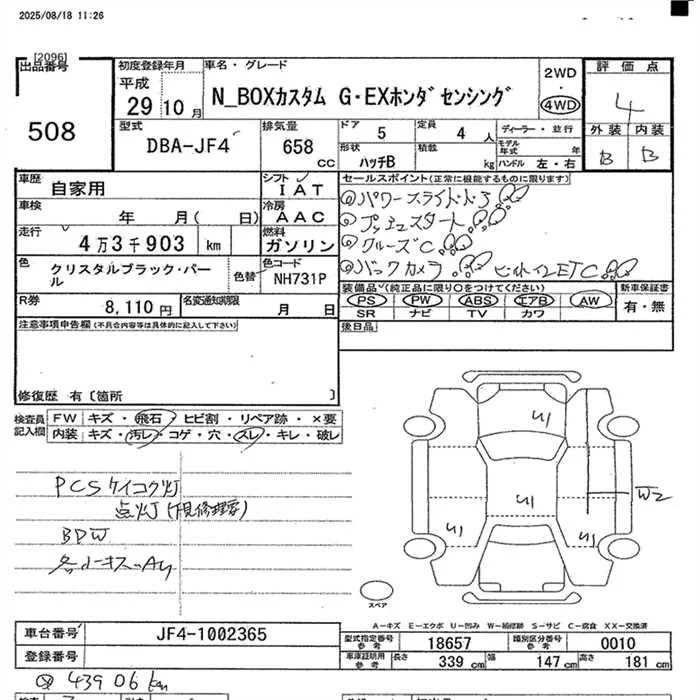 2025/08/18 11:26
[2096]
出品番号 508
初度登録年月 平成 29 10 月
車名・グレード N_BOXカスタム G・EXホンダセンシング
2WD ・ 4WD
評価点 4
外装 B 内装 B
型式 DBA-JF4
排気量 658 CC
ドア 5 定員 4 人
形状 ハッチB 積載 kg
ディーラー・並行
モデル年式 年
ハンドル 左・右
車歴 自家用
シフト IAT
車検 年 月( 日)
冷房 AAC
走行 4万3千903 km
燃料 ガソリン
色 クリスタルブラック・パール
色替
色コード NH731P
R券 8,110 円
名変通知期限 月 日
セールスポイント(正常に機能するものに限ります)
◎パワースライドドア
◎プッシュスタート
◎クルーズC
◎バックカメラ ビルトインETC
装備品(純正品に限り○をつけてください)
PS PW ABS エアB AW
SR ナビ TV カワ
新車保証書 有・無
後日品
注意事項申告欄(不具合内容等は具体的に記入して下さい)
修復歴 有〔箇所 〕
検査員記入欄
FW キズ・飛石・ヒビ割・リペア跡・×要
内装 キズ・汚レ・コゲ・穴・スレ・キレ・破レ
PCSケイコク灯
点灯(下見修理要)
BDW
U1
U1
U1
U1
W2
スペア
A-キズ E-エクボ U-凹み W-補修跡 S-サビ C-腐食 XX-交換済
車台番号 JF4-1002365
登録番号
型式指定番号参考 18657 類別区分番号参考 0010
車庫証明用参考 長さ 339 cm 幅 147 cm 高さ 181 cm
43906 km